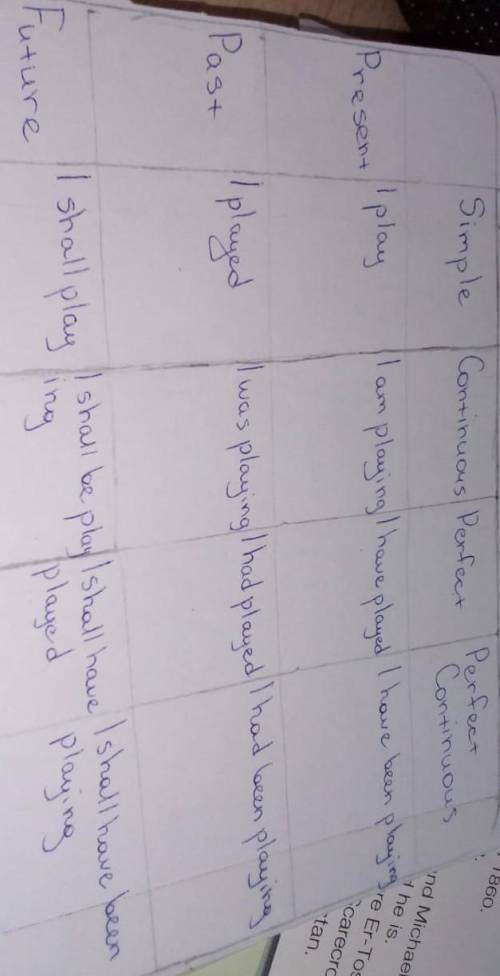 Simple Continuous Perfect Perfect
Continuous
Present I play I am playing I have played I have been playing
Past I played I was playing I had played I had been playing
Future I shall play I shall be play I shall have I shall have been
ing played playing
1860.
nd Michae
he is.
re Er-Tos
carecro
tan.